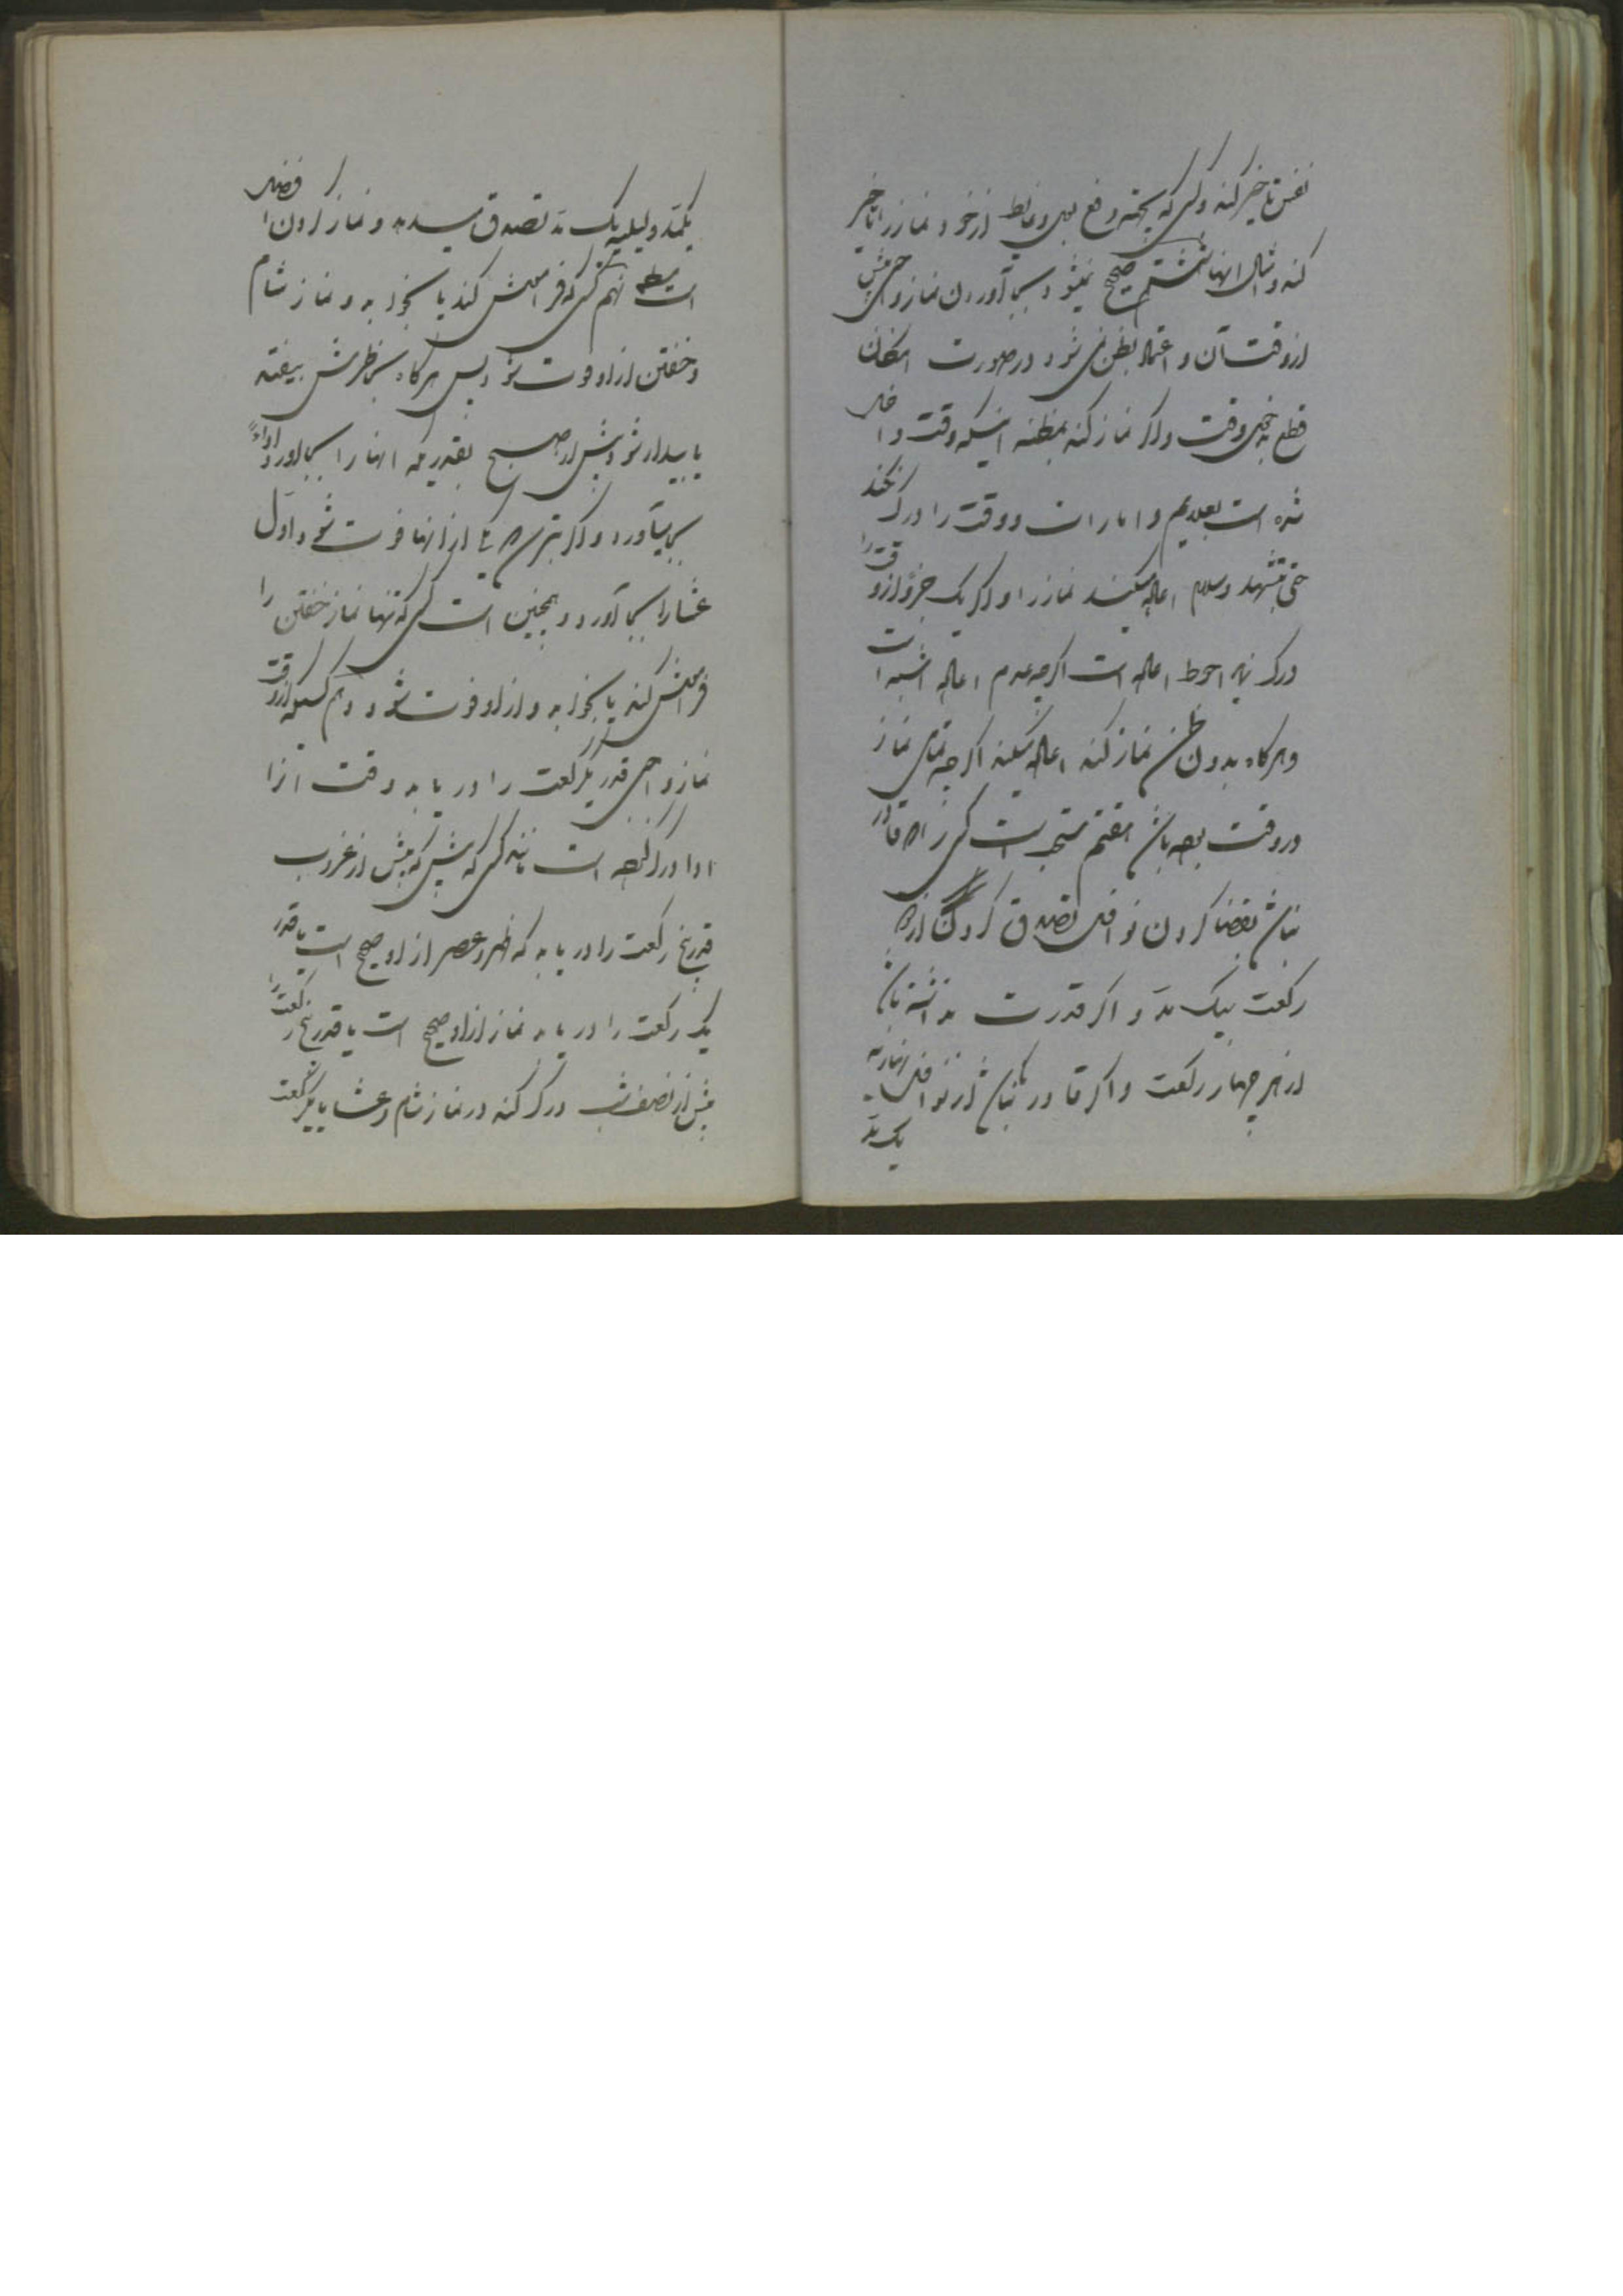 نفس تاخیر کند و کسی که بجهة رفع بول و غایط از خود نماز را تاخیر
کند و امثال اینها هشتم صحیح نمیشود بجا آوردن نماز واجبی پیش
از وقت آن و اعتماد بظن نمی شود در صورت امکان
قطع بدخول وقت و اگر نماز کند بمظنه اینکه وقت داخل
شده است بعلایم و امارات و وقت را درک نکند
حتی بتشهد و سلام اعاده میکند نماز را و اگر یک جزو از وقت را
درک نماید احوط اعاده است اگرچه عدم اعاده اشبه است
و هرگاه بدون ظن نماز کند اعاده میکند اگرچه تمام نماز
در وقت بوده باشد هفتم مستحب است کسی را که قادر
نباشد بقضا کردن نوافل تصدق کردن از هر دو
رکعت بیک مد و اگر قدرت نداشته باشد
از هر چهار رکعت و اگر قادر نباشد از نوافل نهاریه
یک مد
یکمد و لیلیه یک مد تصدق میدهد و نماز کردن افضل
است نهم کسی که فراموش کند یا بخوابد و نماز شام
و خفتن از او فوت شود پس هرگاه بخاطرش بیفتد
یا بیدار شود پیش از صبح بقدریکه آنها را بجا آورد اداءً
بجا میآورد و اگر بترسد که یکی از آنها فوت شود اول
عشا را بجا آورد و همچنین است کسی که تنها نماز خفتن را
فراموش کند یا بخوابد و از او فوت شود دهم کسیکه از وقت
نماز واجبی قدر یکرکعت را دریابد وقت آنرا
ادا درک نموده است مانند کسی که پیش از غروب
قدر پنج رکعت را دریابد که ظهر و عصر از او صحیح است یا قدر
یک رکعت را دریابد نماز از او صحیح است یا قدر پنج رکعت را
پیش از نصف شب درک کند در نماز شام و عشا یا یکرکعت